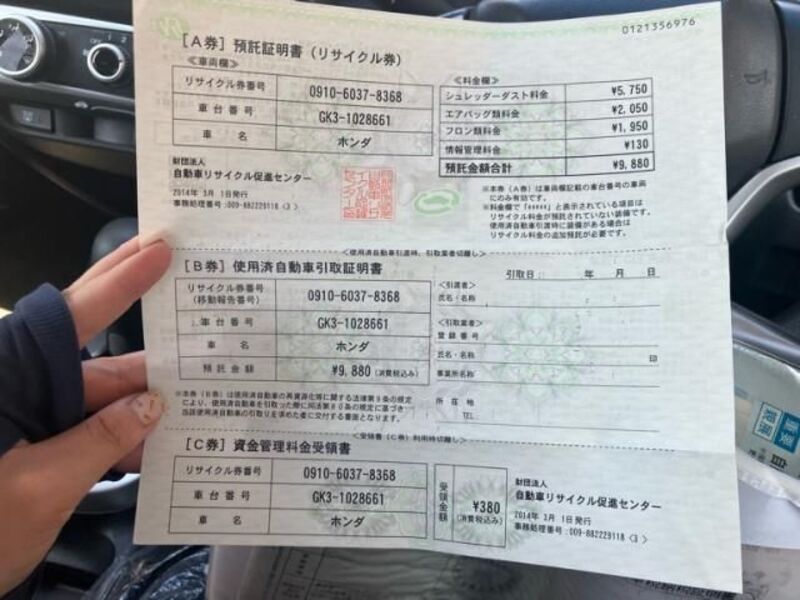 0121356976
[A券] 預託証明書 (リサイクル券)
≪車両欄≫
リサイクル券番号 0910-6037-8368
車台番号 GK3-1028661
車名 ホンダ
財団法人
自動車リサイクル促進センター
2014年 3月 1日発行
事務処理番号:009-882229118 <3>
≪料金欄≫
シュレッダーダスト料金 ¥5,750
エアバッグ類料金 ¥2,050
フロン類料金 ¥1,950
情報管理料金 ¥130
預託金額合計 ¥9,880
※本券(A券)は車両欄記載の車台番号の車両
にのみ有効です。
※料金欄で「*****」と表示されている項目は
リサイクル料金が預託されていない装備です。
使用済自動車引渡時に装備がある場合は
リサイクル料金の追加預託が必要です。
<使用済自動車引渡時、引取業者切離し>
[B券] 使用済自動車引取証明書
リサイクル券番号
(移動報告番号) 0910-6037-8368
車台番号 GK3-1028661
車名 ホンダ
預託金額 ¥9,880 (消費税込み)
※本券(B券)は使用済自動車の再資源化等に関する法律第9条の規定
により、使用済自動車を引取った際に同法第80条の規定に基づき
当該使用済自動車の引取りを求めた者に交付する書面となります。
引取日: 年 月 日
<引渡者>
氏名・名称
<引取業者>
登録番号
氏名・名称 印
事業所名称
所在地
TEL
<受領書(C券)利用時切離し>
[C券] 資金管理料金受領書
リサイクル券番号 0910-6037-8368
車台番号 GK3-1028661
車名 ホンダ
受領金額 ¥380 (消費税込み)
財団法人
自動車リサイクル促進センター
2014年 3月 1日発行
事務処理番号:009-882229118 <3>
重要